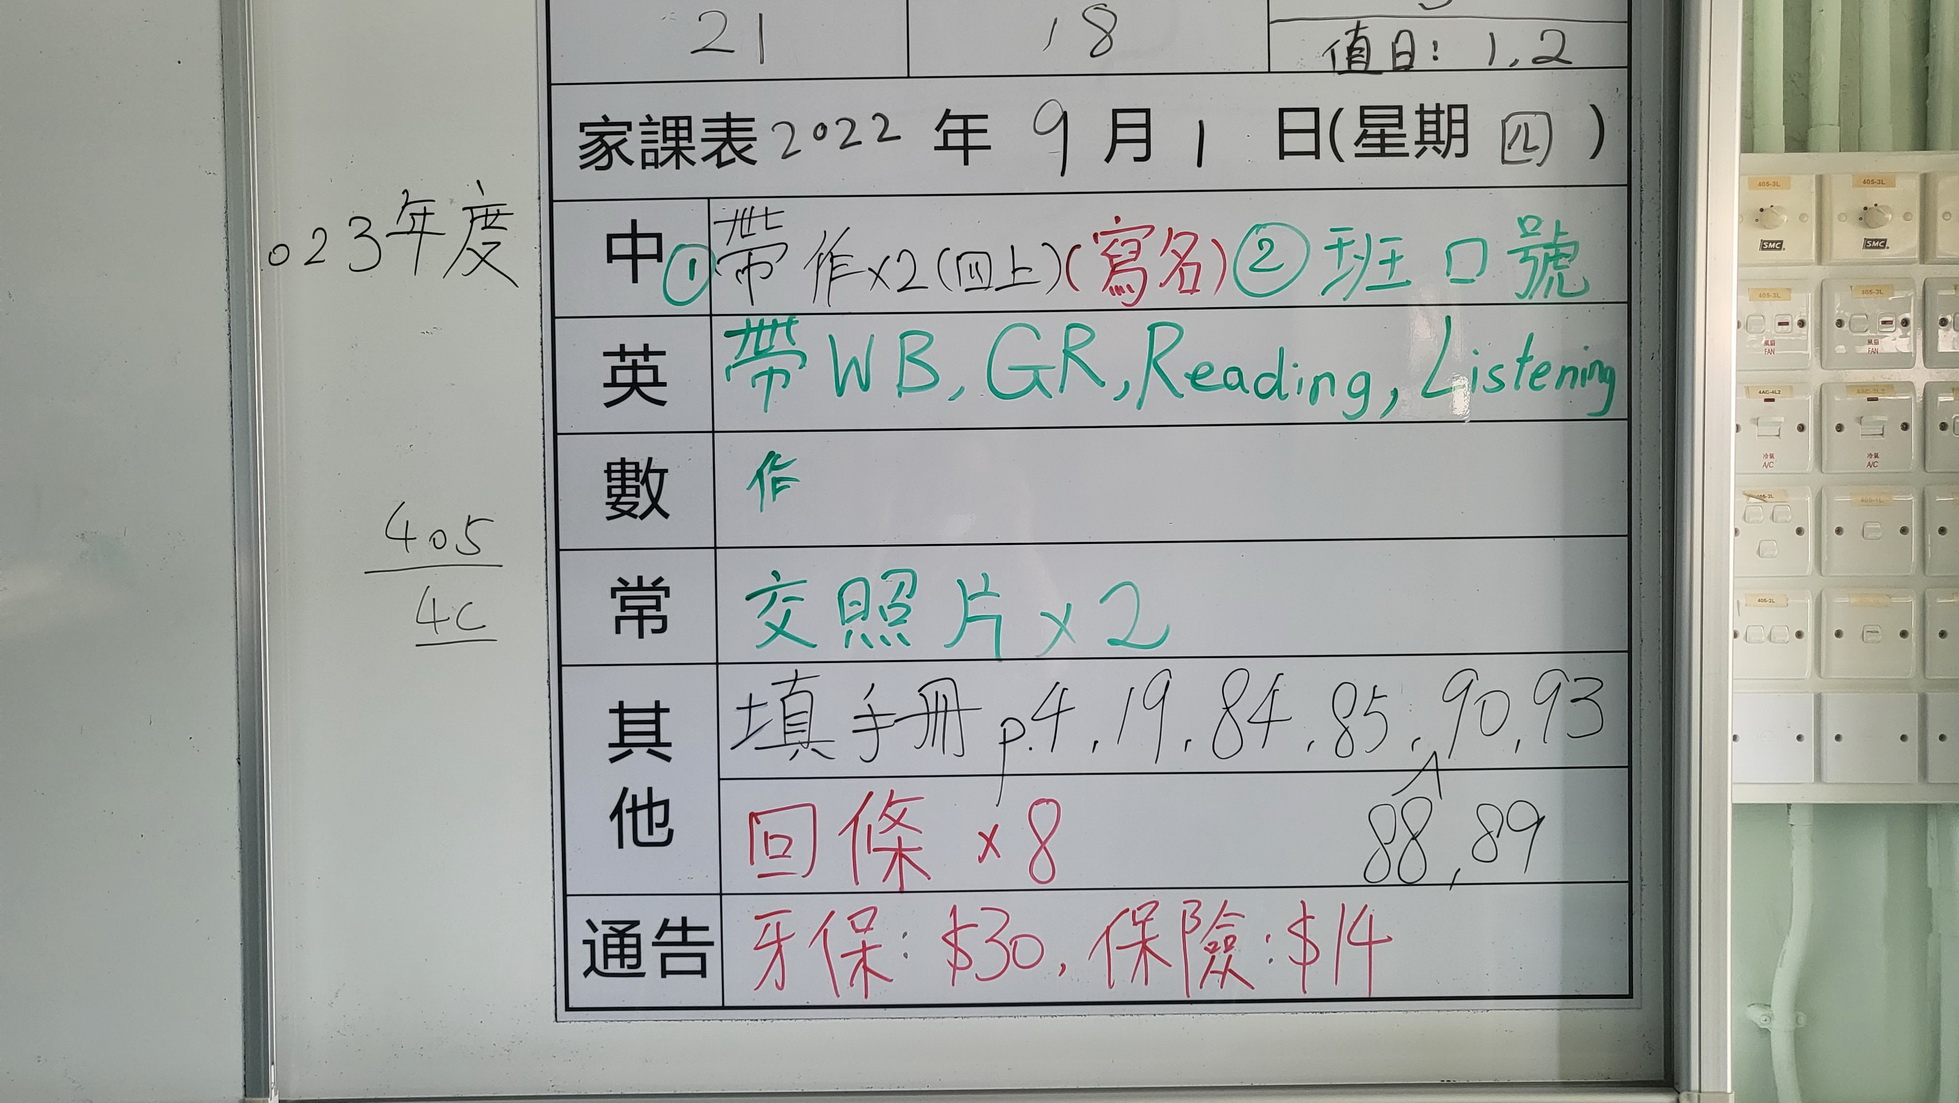 21 18
值日: 1,2
家課表 2022 年 9 月 1 日(星期 四 )
023年度
中 ①帶作x2(四上)(寫名)②班口號
英 帶WB, GR, Reading, Listening
數 作
405
4C
常 交照片x2
其他 填手冊 p.4, 19, 84, 85, 90, 93
回條 x8 88, 89
通告 牙保: $30, 保險: $14
405-3L 405-3L
SMC SMC
405-3L 405-3L
風扇 風扇
FAN FAN
4AC-4L2
冷氣 冷氣
A/C A/C
405-3L